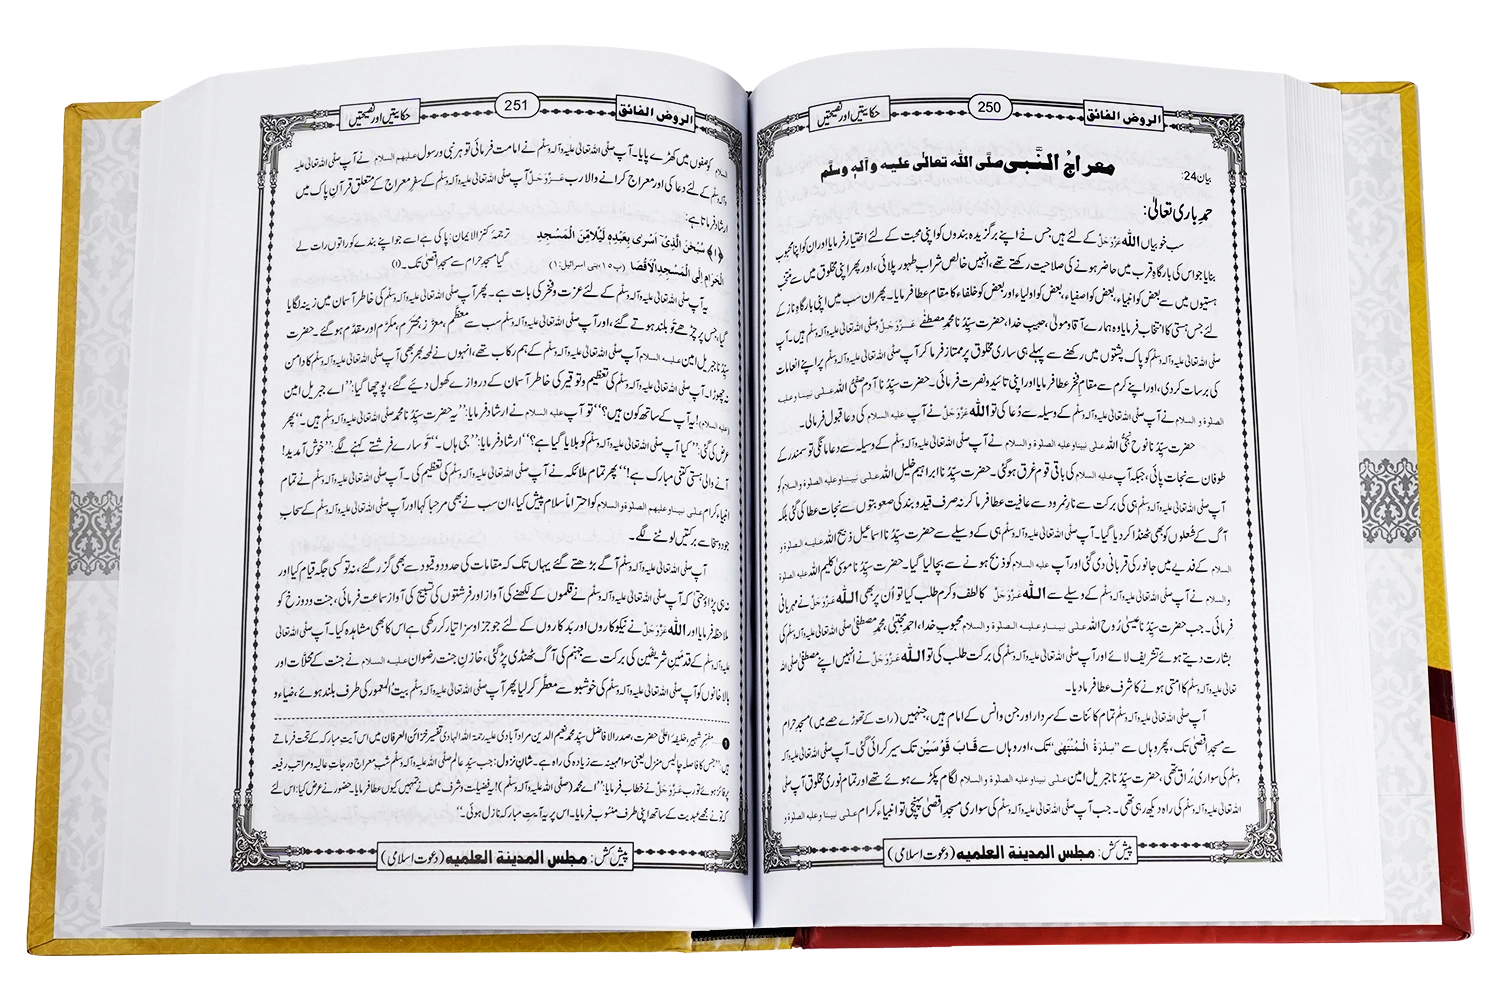 الروض الفائق 250 حکایتیں اور نصیحتیں
بیان 24: معراجُ النَّبی صلَّی اللہ تعالٰی علیہ واٰلہٖ وسلَّم
حمدِ باری تعالیٰ:
سب خوبیاں اللہ عَزَّوَجَلَّ کے لئے ہیں جس نے اپنے برگزیدہ بندوں کو اپنی محبت کے لئے اختیار فرمایا اور ان کو اپنا محبوب
بنایا جو اس کی بارگاہِ قرب میں حاضر ہونے کی صلاحیت رکھتے تھے، انہیں خالص شراب طہور پلائی، اور پھر اپنی مخلوق میں سے منتخب
ہستیوں میں سے بعض کو انبیاء، بعض کو اصفیاء، بعض کو اولیاء اور بعض کو خلفاء کا مقام عطا فرمایا۔ پھر ان سب میں اپنی بارگاہِ ناز کے
لئے جس ہستی کا انتخاب فرمایا وہ ہمارے آقا و مولیٰ، حبیب خدا، حضرت سیِّدُنا محمد مصطفٰے عَزَّوَجَلَّ وصلَّی اللہ تعالیٰ علیہ وآلہ وسلَّم ہیں۔ آپ
صلَّی اللہ تعالیٰ علیہ وآلہ وسلَّم کو پاک پشتوں میں رکھنے سے پہلے ہی ساری مخلوق پر ممتاز فرما کر آپ صلَّی اللہ تعالیٰ علیہ وآلہ وسلَّم پر اپنے انعامات
کی برسات کر دی، اور اپنے کرم سے مقامِ فخر عطا فرمایا اور اپنی تائید و نصرت فرمائی۔ حضرت سیِّدُنا آدم صفیُّ اللہ علی نبینا وعلیہ
الصلوۃ والسلام نے آپ صلَّی اللہ تعالیٰ علیہ وآلہ وسلَّم کے وسیلہ سے دُعا کی تو اللہ عَزَّوَجَلَّ نے آپ علیہ السلام کی دعا قبول فرمالی۔
حضرت سیِّدُنا نوح نجیُّ اللہ علی نبینا وعلیہ الصلوۃ والسلام نے آپ صلَّی اللہ تعالیٰ علیہ وآلہ وسلَّم کے وسیلہ سے دعا مانگی تو سمندر کے
طوفان سے نجات پائی، جبکہ آپ علیہ السلام کی باقی قوم غرق ہوگئی۔ حضرت سیِّدُنا ابراہیم خلیل اللہ علی نبینا وعلیہ الصلوۃ والسلام کو
آپ صلَّی اللہ تعالیٰ علیہ وآلہ وسلَّم ہی کی برکت سے نارِ نمرود سے عافیت عطا فرما کر نہ صرف قید و بند کی صعوبتوں سے نجات عطا کی گئی بلکہ
آگ کے شعلوں کو بھی ٹھنڈا کر دیا گیا۔ آپ صلَّی اللہ تعالیٰ علیہ وآلہ وسلَّم ہی کے وسیلے سے حضرت سیِّدُنا اسماعیل ذبیح اللہ علیہ الصلوۃ و
السلام کے فدیے میں جانور کی قربانی دی گئی اور آپ علیہ السلام کو ذبح ہونے سے بچا لیا گیا۔ حضرت سیِّدُنا موسیٰ کلیم اللہ علیہ الصلوۃ
والسلام نے آپ صلَّی اللہ تعالیٰ علیہ وآلہ وسلَّم کے وسیلے سے اللہ عَزَّوَجَلَّ کا لطف و کرم طلب کیا تو اُن پر بھی اللہ عَزَّوَجَلَّ نے مہربانی
فرمائی۔ جب حضرت سیِّدُنا عیسیٰ رُوح اللہ علی نبینا وعلیہ الصلوۃ والسلام محبوبِ خدا، احمدِ مجتبیٰ، محمدِ مصطفیٰ صلَّی اللہ تعالیٰ علیہ وآلہ وسلَّم کی
بشارت دیتے ہوئے تشریف لائے اور آپ صلَّی اللہ تعالیٰ علیہ وآلہ وسلَّم کی برکت طلب کی تو اللہ عَزَّوَجَلَّ نے انہیں اپنے مصطفیٰ صلَّی اللہ
تعالیٰ علیہ وآلہ وسلَّم کا امتی ہونے کا شرف عطا فرما دیا۔
آپ صلَّی اللہ تعالیٰ علیہ وآلہ وسلَّم تمام کائنات کے سردار اور جن و انس کے امام ہیں، جنہیں (رات کے تھوڑے حصے میں) مسجد حرام
سے مسجد اقصیٰ تک، پھر وہاں سے ”سِدْرَۃُ الْمُنْتَہٰی“ تک، اور وہاں سے قَابَ قَوْسَیْن تک سیر کرائی گئی۔ آپ صلَّی اللہ تعالیٰ علیہ وآلہ
وسلَّم کی سواری بُراق تھی، حضرت سیِّدُنا جبریل امین علی نبینا وعلیہ الصلوۃ والسلام لگام پکڑے ہوئے تھے اور تمام نوری مخلوق آپ صلَّی
اللہ تعالیٰ علیہ وآلہ وسلَّم کی راہ دیکھ رہی تھی۔ جب آپ صلَّی اللہ تعالیٰ علیہ وآلہ وسلَّم کی سواری مسجدِ اقصیٰ پہنچی تو انبیاء کرام علی نبینا وعلیہم الصلوۃ و
پیش کش: مجلس المدینۃ العلمیہ (دعوتِ اسلامی)
الروض الفائق 251 حکایتیں اور نصیحتیں
السلام کو صفوں میں کھڑے پایا۔ آپ صلَّی اللہ تعالیٰ علیہ وآلہ وسلَّم نے امامت فرمائی تو ہر نبی و رسول علیہم السلام نے آپ صلَّی اللہ تعالیٰ علیہ
وآلہ وسلَّم کے لئے دعا کی اور معراج کرانے والا رب عَزَّوَجَلَّ آپ صلَّی اللہ تعالیٰ علیہ وآلہ وسلَّم کے سفرِ معراج کے متعلق قرآنِ پاک میں
ارشاد فرماتا ہے:
﴿۱﴾ سُبْحٰنَ الَّذِیْۤ اَسْرٰی بِعَبْدِہٖ لَیْلًا مِّنَ الْمَسْجِدِ ترجمۂ کنز الایمان: پاکی ہے اسے جو اپنے بندے کو راتوں رات لے
الْحَرَامِ اِلَی الْمَسْجِدِ الْاَقْصَا (پ۱۵، بنی اسرائیل: ۱) گیا مسجد حرام سے مسجد اقصیٰ تک۔(۱)
یہ آپ صلَّی اللہ تعالیٰ علیہ وآلہ وسلَّم کے لئے عزت و فخر کی بات ہے۔ پھر آپ صلَّی اللہ تعالیٰ علیہ وآلہ وسلَّم کی خاطر آسمان میں زینہ لگایا
گیا، جس پر چڑھے تو بلند ہوتے گئے، اور آپ صلَّی اللہ تعالیٰ علیہ وآلہ وسلَّم سب سے معظَّم، معزَّز، محترَم، مکرَّم اور مقدَّم ہوگئے۔ حضرت
سیِّدُنا جبریلِ امین علیہ السلام آپ صلَّی اللہ تعالیٰ علیہ وآلہ وسلَّم کے ہم رکاب تھے، انہوں نے لمحہ بھر بھی آپ صلَّی اللہ تعالیٰ علیہ وآلہ وسلَّم کا دامن
نہ چھوڑا۔ آپ صلَّی اللہ تعالیٰ علیہ وآلہ وسلَّم کی تعظیم و توقیر کی خاطر آسمان کے دروازے کھول دیئے گئے، پوچھا گیا: ”اے جبریل امین
(علیہ السلام)! یہ آپ کے ساتھ کون ہیں؟“ تو آپ علیہ السلام نے ارشاد فرمایا: ”یہ حضرت سیِّدُنا محمد صلَّی اللہ تعالیٰ علیہ وآلہ وسلَّم ہیں۔“ پھر
عرض کی گئی: ”کیا آپ صلَّی اللہ تعالیٰ علیہ وآلہ وسلَّم کو بلایا گیا ہے؟“ ارشاد فرمایا: ”جی ہاں۔“ تو سارے فرشتے کہنے لگے: ”خوش آمدید!
آنے والی ہستی کتنی مبارک ہے!“ پھر تمام ملائکہ نے آپ صلَّی اللہ تعالیٰ علیہ وآلہ وسلَّم کی تعظیم کی۔ آپ صلَّی اللہ تعالیٰ علیہ وآلہ وسلَّم نے تمام
انبیاء کرام علی نبینا وعلیہم الصلوۃ والسلام کو احتراماً سلام پیش کیا، ان سب نے بھی مرحبا کہا اور آپ صلَّی اللہ تعالیٰ علیہ وآلہ وسلَّم کے سحابِ
جود و سخا سے برکتیں لوٹنے لگے۔
آپ صلَّی اللہ تعالیٰ علیہ وآلہ وسلَّم آگے بڑھتے گئے یہاں تک کہ مقامات کی حدود و قیود سے بھی گزر گئے، نہ تو کسی جگہ قیام کیا اور
نہ ہی پڑاؤ حتیٰ کہ آپ صلَّی اللہ تعالیٰ علیہ وآلہ وسلَّم نے قلموں کے لکھنے کی آواز اور فرشتوں کی تسبیح کی آواز سماعت فرمائی، جنت و دوزخ کو
ملاحظہ فرمایا اور اللہ عَزَّوَجَلَّ نے نیکوکاروں اور بدکاروں کے لئے جو جزا و سزا تیار کر رکھی ہے اس کا بھی مشاہدہ کیا۔ آپ صلَّی اللہ تعالیٰ
علیہ وآلہ وسلَّم کے قدمین شریفین کی برکت سے جہنم کی آگ ٹھنڈی پڑ گئی، خازنِ جنت رضوان علیہ السلام نے جنت کے محلَّات اور
بالاخانوں کو آپ صلَّی اللہ تعالیٰ علیہ وآلہ وسلَّم کی خوشبو سے معطَّر کر لیا پھر آپ صلَّی اللہ تعالیٰ علیہ وآلہ وسلَّم بیتُ المعمور کی طرف بلند ہوئے، ضیاء و
1 ...مفسِّرِ شہیر، خلیفۂ اعلیٰ حضرت، صدر الافاضل سیِّد محمد نعیم الدین مراد آبادی علیہ رحمۃ اللہ الہادی تفسیر خزائن العرفان میں اس آیتِ مبارکہ کے تحت فرماتے
ہیں: ”جس کا فاصلہ چالیس منزل یعنی سوا مہینہ سے زیادہ کی راہ ہے۔ شانِ نزول: جب سیِّدِ عالم صلَّی اللہ تعالیٰ علیہ وآلہ وسلَّم شبِ معراج درجاتِ عالیہ و مراتبِ رفیعہ
پر فائز ہوئے تو رب عَزَّوَجَلَّ نے خطاب فرمایا: ”اے محمد (صلَّی اللہ علیہ وآلہ وسلَّم)! یہ فضیلت و شرف میں نے تمہیں کیوں عطا فرمایا؟ حضور نے عرض کیا: اس لئے
کہ تو نے مجھے عبدیت کے ساتھ اپنی طرف منسوب فرمایا۔ اس پر یہ آیتِ مبارکہ نازل ہوئی۔“
پیش کش: مجلس المدینۃ العلمیہ (دعوتِ اسلامی)